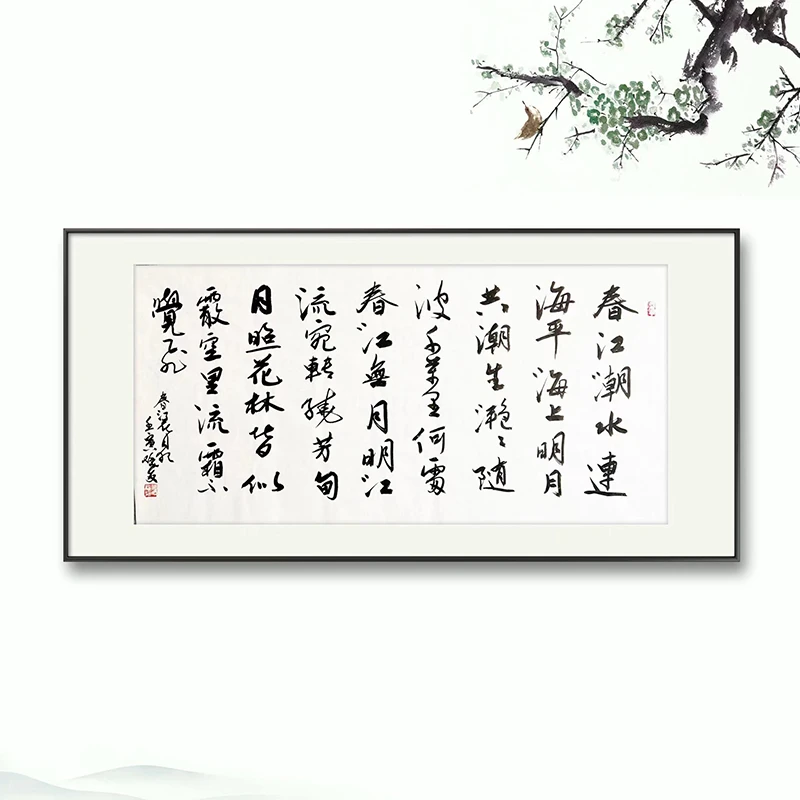 春江潮水連
海平海上明月
共潮生灧々随
波千萬里何處
春江無月明江
流宛轉繞芳甸
月照花林皆似
霰空里流霜不
覺飛
春江花月夜
壬寅